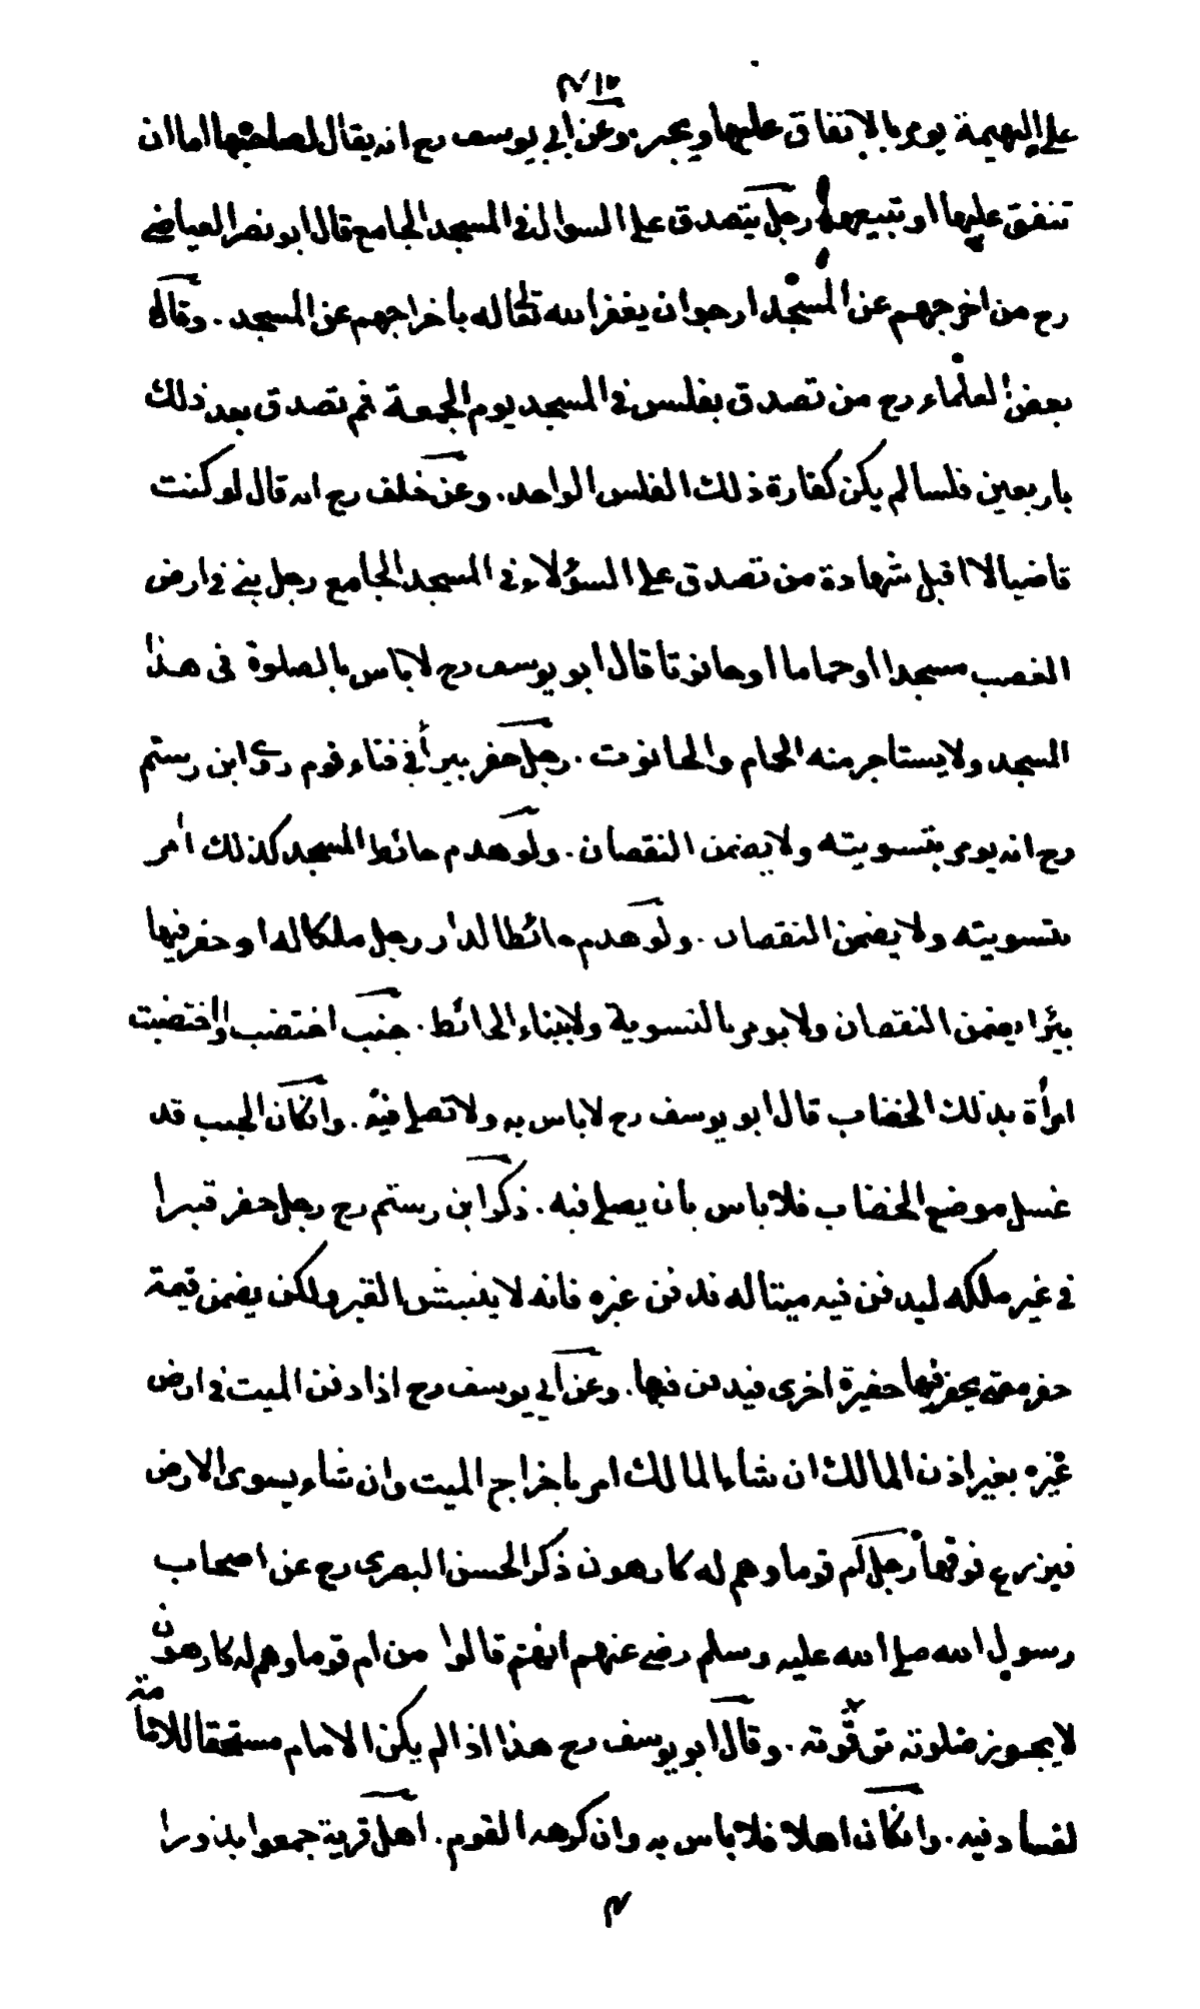 ٤١٢
على البهيمة يومر بالانفاق عليها ويجبر وعن ابي يوسف رح انه يقال لصاحبها اما ان
تنفق عليها او تبيعها رجل يتصدق على السوال في المسجد الجامع قال ابو نصر العياضي
رح من اخرجهم عن المسجد ارجو ان يغفر الله تعالى له باخراجهم عن المسجد . وقال
بعض العلماء رح من تصدق بفلس في المسجد يوم الجمعة ثم تصدق بعد ذلك
باربعين فلسا لم يكن كفارة ذلك الفلس الواحد . وعن خلف رح انه قال لو كنت
قاضيا لا اقبل شهادة من تصدق على السؤلاء في المسجد الجامع رجل بنى في ارض
الغصب مسجدا او حماما او حانوتا قال ابو يوسف رح لا باس بالصلوة في هذا
المسجد ولا يستاجر منه الحمام والحانوت . رجل حفر بيرأ في فناء قوم روى ابن رستم
رح انه يومر بتسويته ولا يضمن النقصان . ولو هدم حائط المسجد كذلك امر
بتسويته ولا يضمن النقصان . ولو هدم حائطا لدار رجل ملكا له او حفر فيها
بئرا يضمن النقصان ولا يومر بالتسوية ولا ببناء الحائط . جنب اختضب او اختضبت
امرأة بذلك الخضاب قال ابو يوسف رح لا باس به ولا تصلي فيه . وان كان الجنب قد
غسل موضع الخضاب فلا باس بان يصلي فيه . ذكر ابن رستم رح رجل حفر قبرا
في غير ملكه ليدفن فيه ميتا له فدفن غيره فانه لا ينبش القبر ولكن يضمن قيمة
حفره حتى يحفر فيها حفيرة اخرى فيدفن فيها . وعن ابي يوسف رح اذا دفن الميت في ارض
غيره بغير اذن المالك ان شاء المالك امر باخراج الميت وان شاء يسوى الارض
فيزرع فوقها رجل ام قوما وهم له كارهون ذكر الحسن البصرى رح عن اصحاب
رسول الله صلى الله عليه وسلم رضي عنهم انهم قالوا من ام قوما وهم له كارهون
لا يجوز صلوته ترقوته . وقال ابو يوسف رح هذا اذا لم يكن الامام مستحقا للامامة
لفساد فيه . وان كان اهلا فلا باس به وان كرهه القوم . اهل قرية جمعوا بذورا